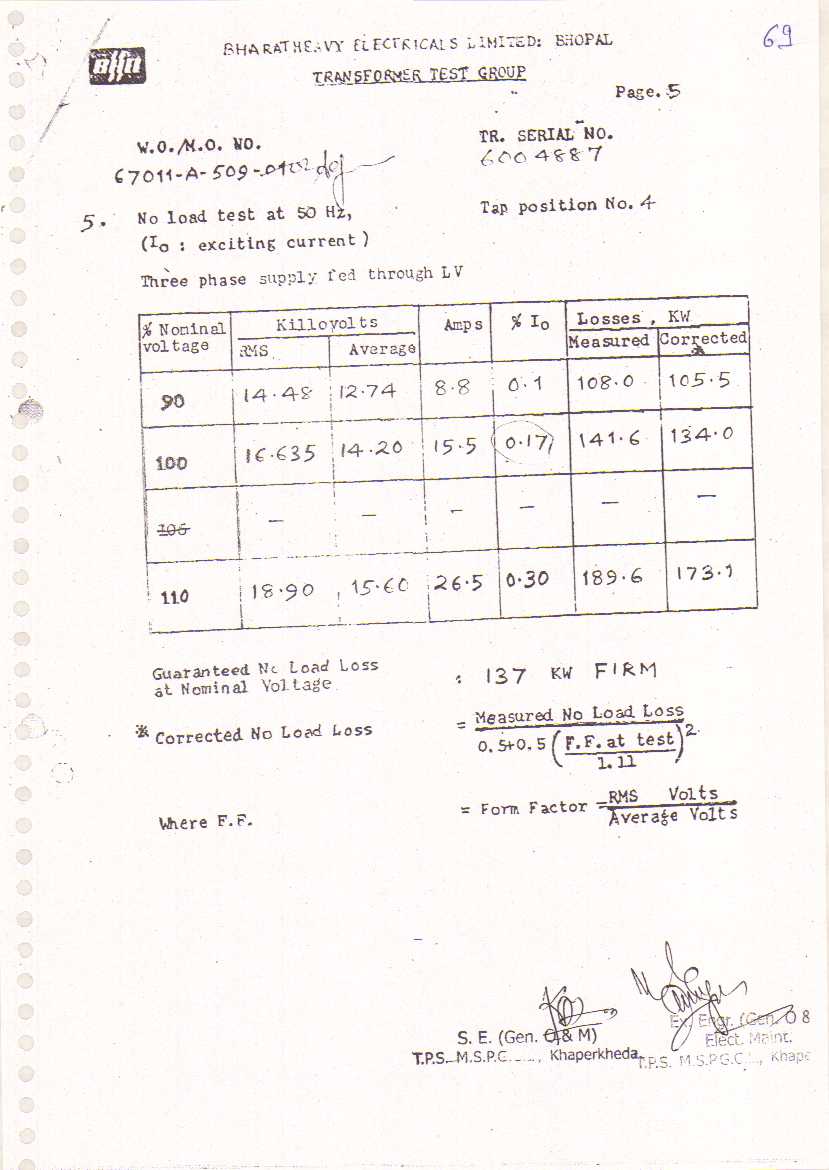 69
BHARAT HEAVY ELECTRICALS LIMITED: BHOPAL
TRANSFORMER TEST GROUP
Page. 5
W.O./M.O. NO.
TR. SERIAL NO.
67011-A-509-
6004887
5. No load test at 50 Hz,
Tap position No. 4
(Io : exciting current)
Three phase supply fed through LV
% Nominal voltage Killovolts Amps % Io Losses, KW
RMS Average Measured Corrected *
90 14.48 12.74 8.8 0.1 108.0 105.5
100 16.635 14.20 15.5 0.17 141.6 134.0
106 — — — — — —
110 18.90 15.60 26.5 0.30 189.6 173.1
Guaranteed No Load Loss
at Nominal Voltage : 137 KW FIRM
* Corrected No Load Loss = Measured No Load Loss
0.5+0.5 (F.F. at test)2
1.11
Where F.F. = Form Factor = RMS Volts
Average Volts
S. E. (Gen. O & M)
T.P.S. M.S.P.C., Khaperkheda.
Ex. Engr. (Gen. O &
Elect. Maint.
T.P.S. M.S.P.G.C.L., Khape